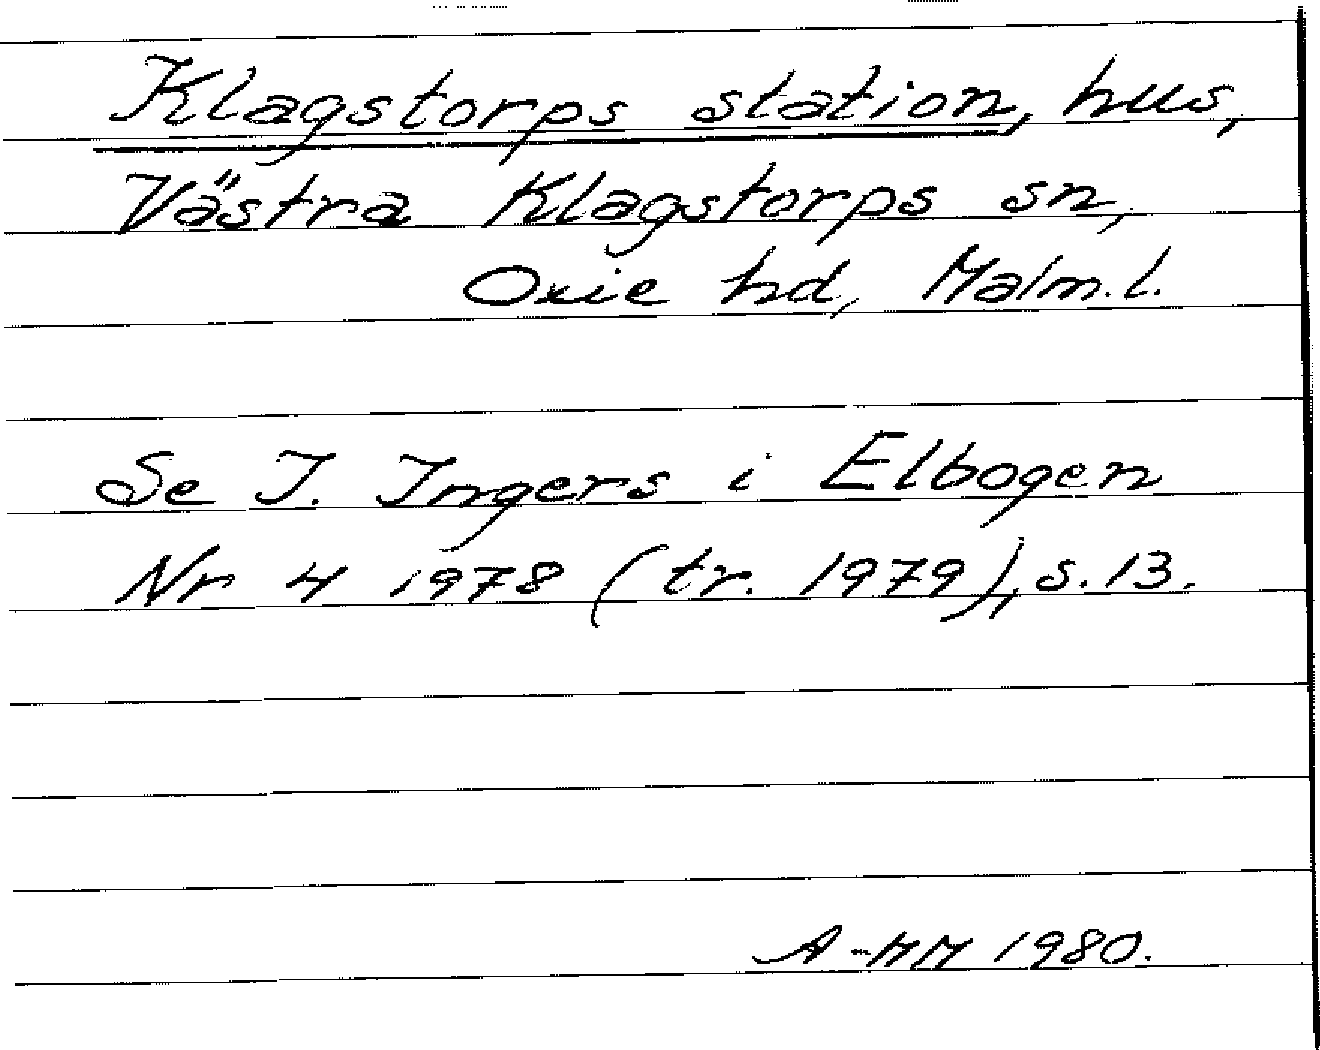 Klagstorps station, hus,
Västra Klagstorps sn,
Oxie hd, Malm. l.
Se I. Ingers i Elbogen
Nr 4 1978 (tr. 1979), s. 13.
A-MM 1980.